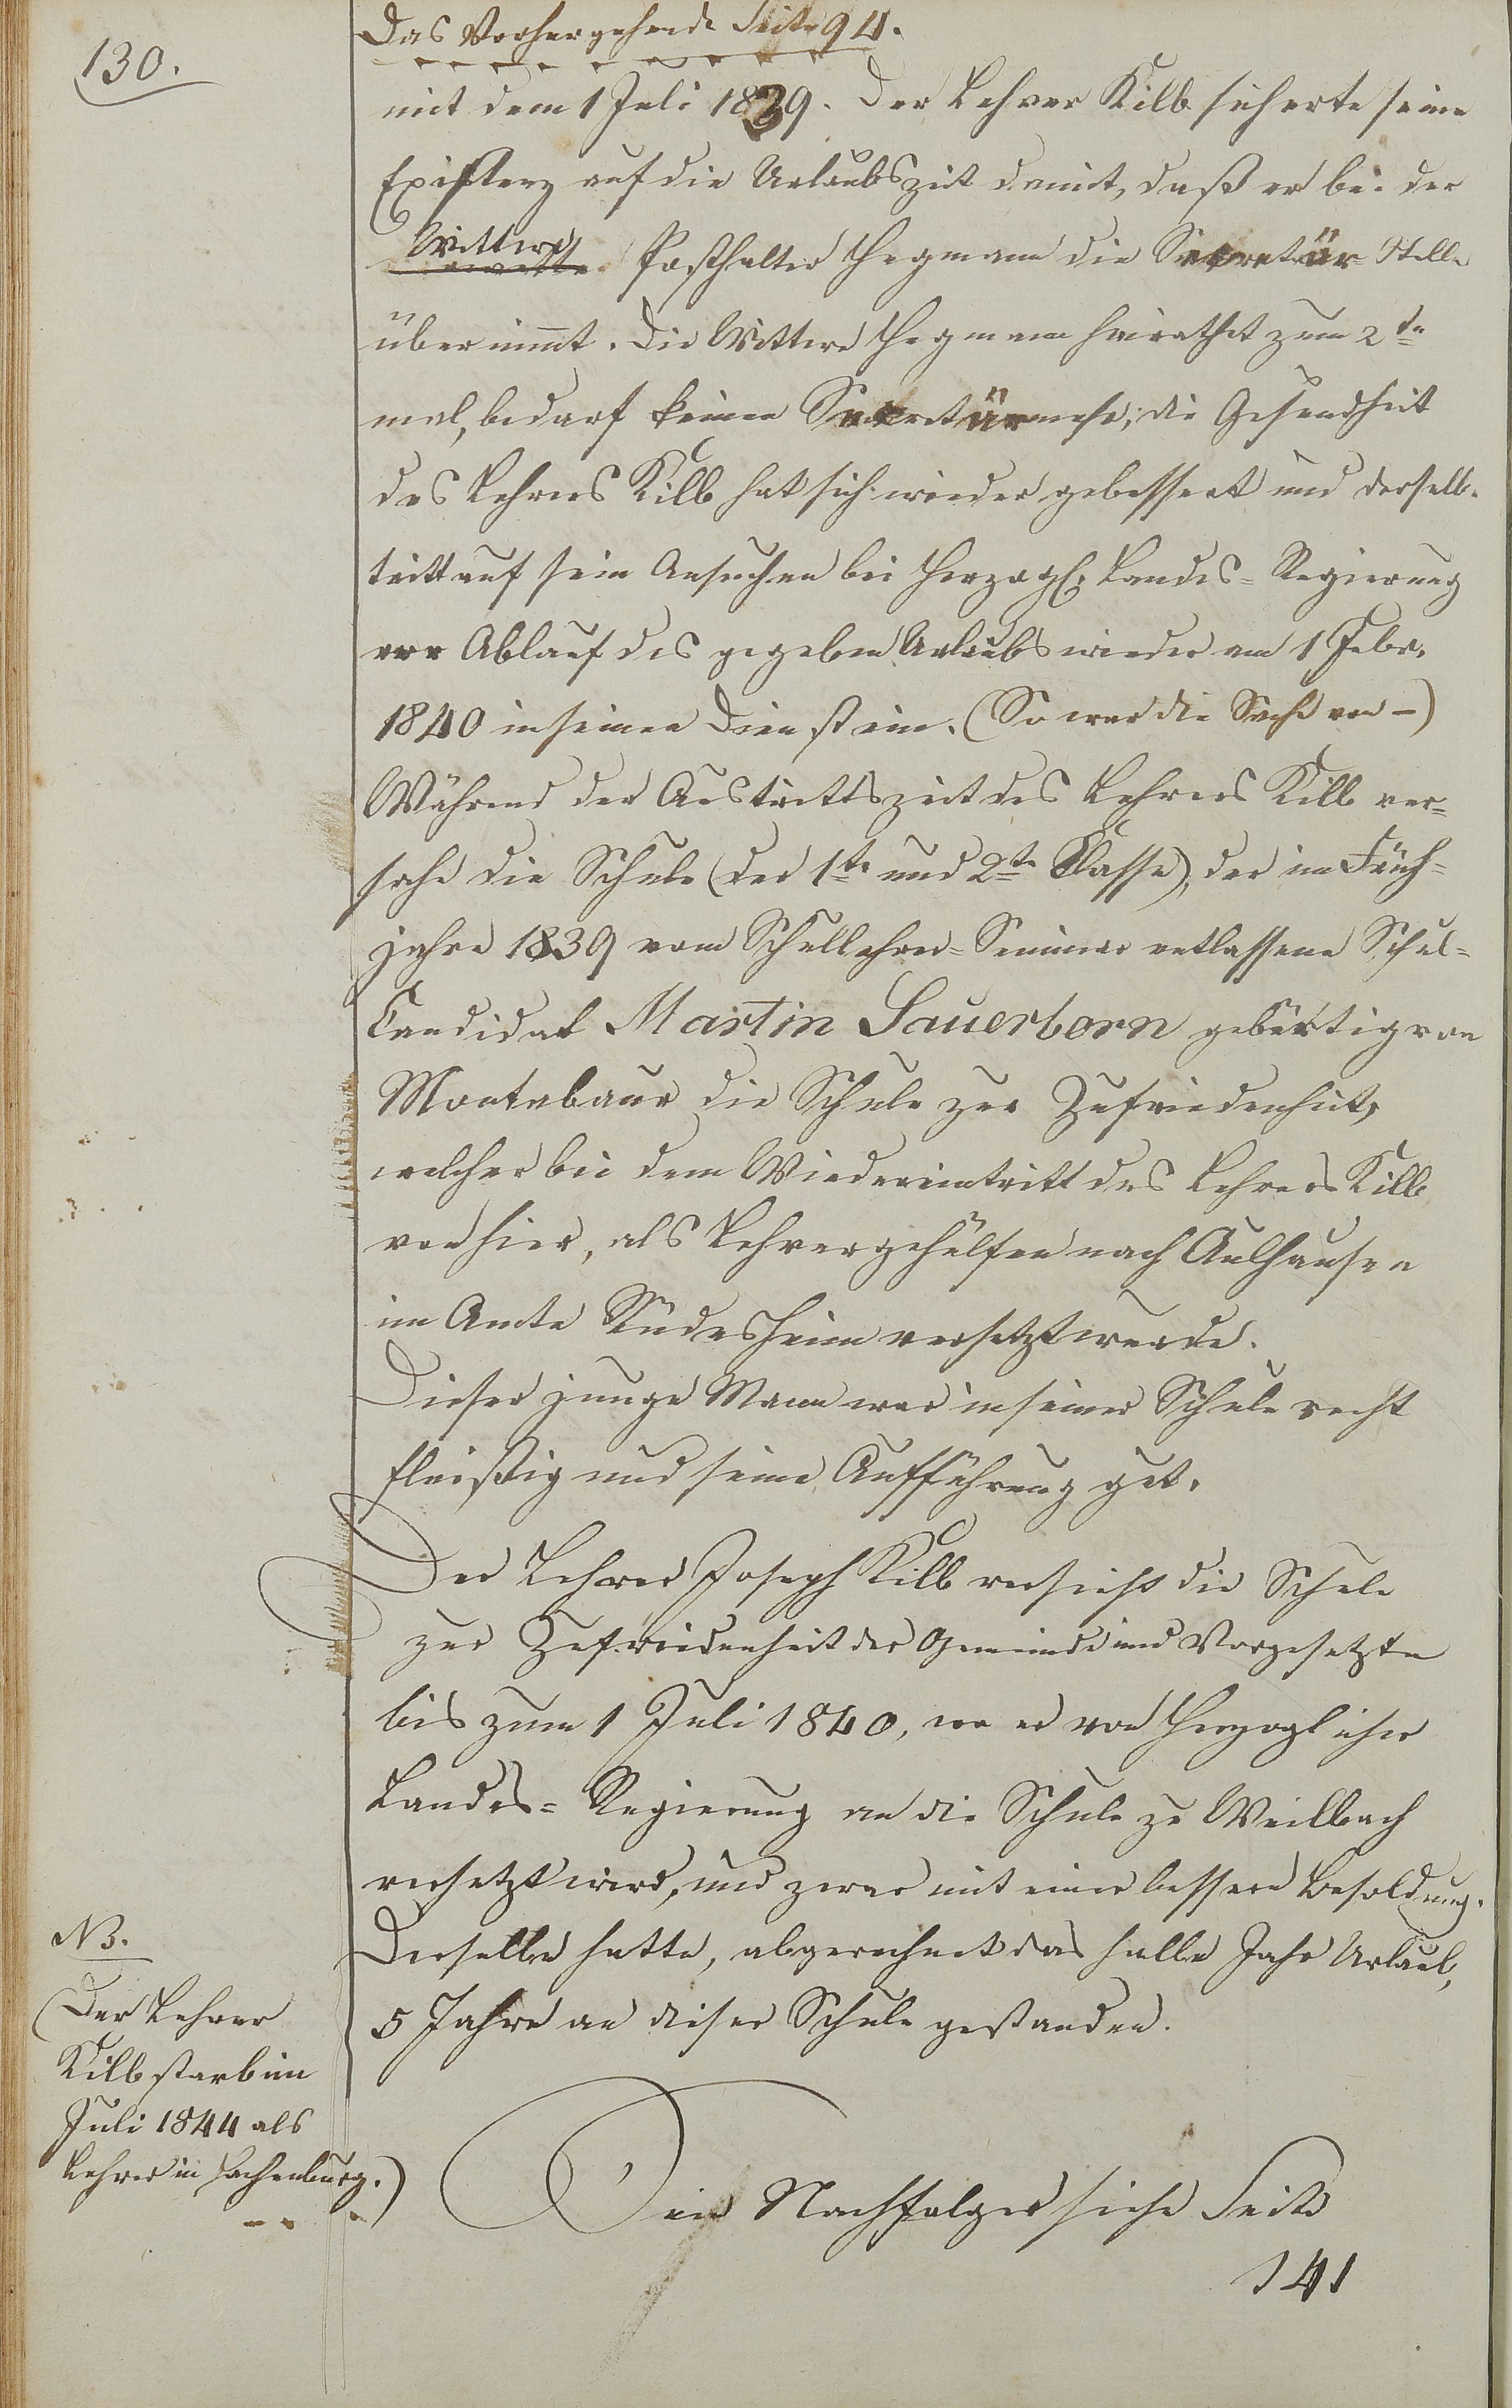 130.
Das Vorhergehende Seite 94.
mit dem 1 Juli 1839. Der Lehrer Kilb sicherte seine
Existenz auf die Urlaubszeit damit, daß er bei der
Wittwe Posthalter Hegmann die Secretär-Stelle
übernimmt. Die Wittwe Hegmann heirathet zum 2te
mal, bedarf keinen Secretär mehr; die Gesundheit
des Lehrers Kilb hat sich wieder gebessert und derselbe
tritt auf sein Ansuchen bei Herzogl. Landes-Regierung
vor Ablauf des gegeben Urlaubs wieder am 1 Febr.
1840 in seinen Dienst ein. (So war die Sache von –)
Während der Austrittszeit des Lehrers Kilb ver-
sahe die Schule (der 1te und 2te Classe), der im Früh-
jahre 1839 vom Schullehrer-Seminar entlassene Schul-
Candidat Martin Sauerborn gebürtig von
Montabaur die Schule zur Zufriedenheit,
welcher bei dem Wiedereintritt des Lehrers Kilb
von hier, als Lehrergehülfen nach Aulhausen
im Amte Rüdesheim versetzt wurde.
Dieser junge Mann war in seiner Schule recht
fleißig und seine Aufführung gut.
Der Lehrer Joseph Kilb versieht die Schule
zur Zufriedenheit der Gemeinde und Vorgesetzte
bis zum 1 Juli 1840, wo er von Herzoglicher
Landes-Regierung an die Schule zu Weilbach
versetzt wird, und zwar mit einer bessern Besoldung.
Derselbe hatte, abgerechnet das halbe Jahr Urlaub,
5 Jahre an dieser Schule gestanden.
NB.
(Der Lehrer
Kilb starb im
Juli 1844 als
Lehrer in Hachenburg.)
Den Nachfolger siehe Seite
141